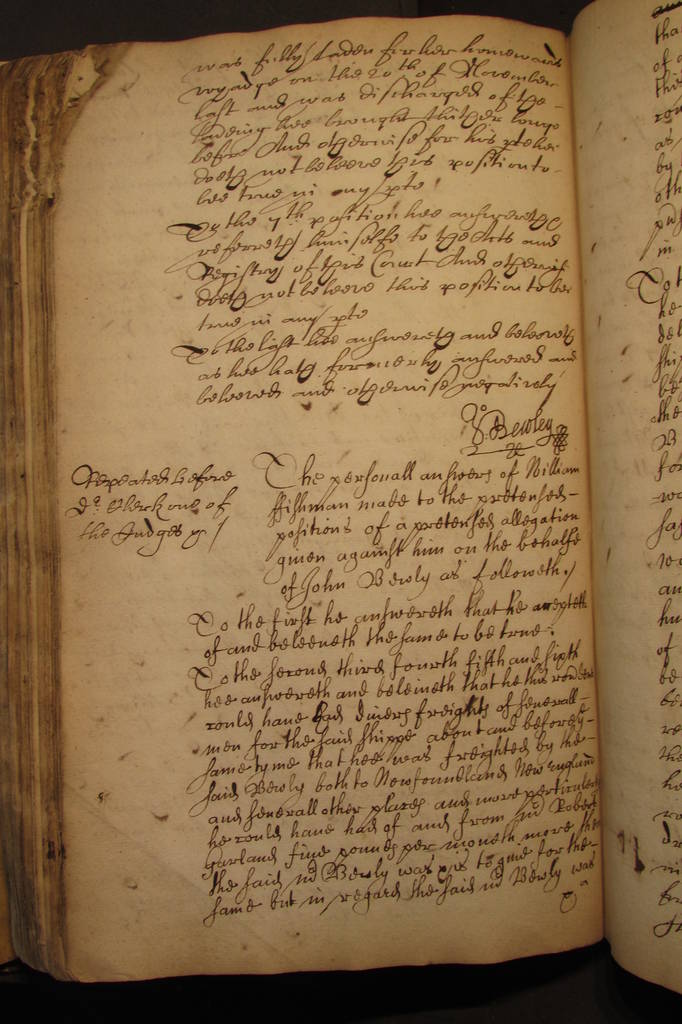 was fully laden for her homewards
voyadge on the 20th of November
last and was discharged of the
ladeing hee brought thither longe
before And otherwise for his pte hee
doeth not beleeve this position to
bee true in any pte
To the 7th position hee answereth &
referreth himselfe to the Acts and
Registry of this Court And otherwise
doeth not beleeve this position to bee
true in any pte
To the last hee answereth and beleeveth
as hee hath formerly answered and
beleeved and otherwise negatively
Bewley
Repeated before
Dr. Clerk one of
the Judges
The personall answers of William
ffishman made to the pretensed
positions of a pretensed allegation
given against him on the behalfe
of John Bewly as followeth./
To the first he answereth that he accepteth
of and beleeveth the same to be true:
To the second third fourth fifth and sixth
hee answereth and beleiveth that he this rondent
could have had divers freights of severall
men for the said shippe about and before the
same tyme that hee was freighted by the
said Bewly both to Newfoundland, New England
and severall other places and more perticulerly
he could have had of and from mr Robert
Garland five pounds per moneth more then
the said mr Bewly was to give for the
same but in regard the said mr Bewly was